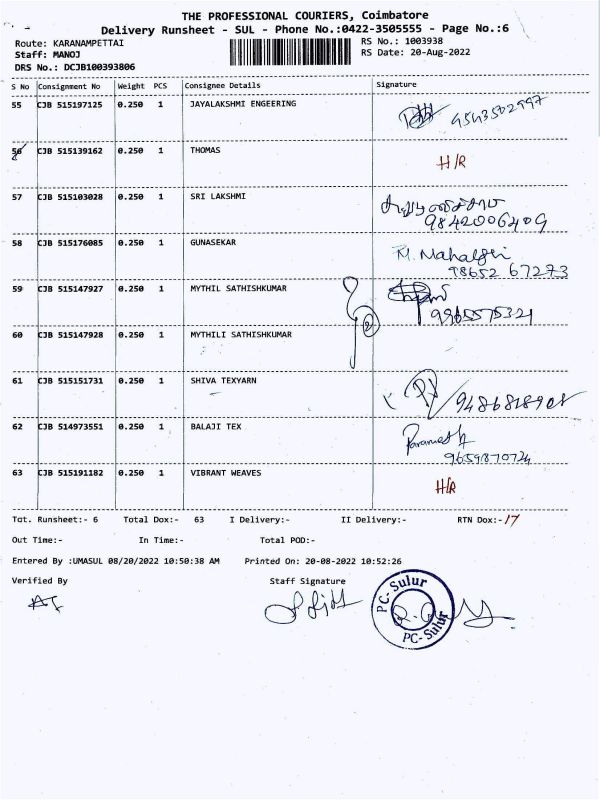 THE PROFESSIONAL COURIERS, Coimbatore
Delivery Runsheet - SUL - Phone No.:0422-3505555 - Page No.:6
Route: KARANAMPETTAI RS No.: 1003938
Staff: MANOJ RS Date: 20-Aug-2022
DRS No.: DCJB100393806
S No Consignment No Weight PCS Consignee Details Signature
55 CJB 515197125 0.250 1 JAYALAKSHMI ENGEERING
56 CJB 515139162 0.250 1 THOMAS H/R
57 CJB 515103028 0.250 1 SRI LAKSHMI
9842006409
58 CJB 515176085 0.250 1 GUNASEKAR M.
98652 67273
59 CJB 515147927 0.250 1 MYTHIL SATHISHKUMAR
9965575321
2
60 CJB 515147928 0.250 1 MYTHILI SATHISHKUMAR
61 CJB 515151731 0.250 1 SHIVA TEXYARN
62 CJB 514973551 0.250 1 BALAJI TEX
9659870724
63 CJB 515191182 0.250 1 VIBRANT WEAVES H/R
Tot. Runsheet:- 6 Total Dox:- 63 I Delivery:- II Delivery:- RTN Dox:- 17
Out Time:- In Time:- Total POD:-
Entered By :UMASUL 08/20/2022 10:50:38 AM Printed On: 20-08-2022 10:52:26
Verified By Staff Signature
PC-Sulur
PC-Sulur